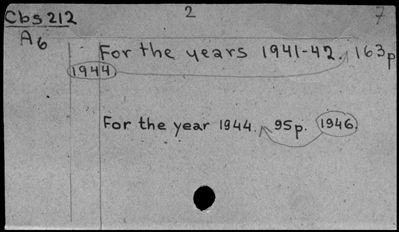 Cbs 212 2 7
A6
For the years 1941-42. 163p
1944
For the year 1944. 95p. 1946.